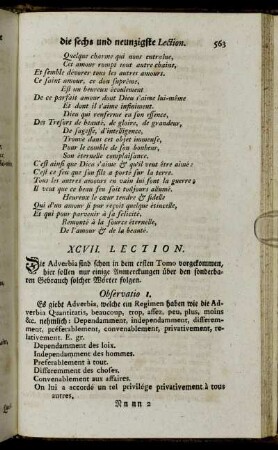 die sechs und neunzigste Lection. 563
Quelque charme qui nous entraîne,
Cet amour rompt tout autre chaîne,
Et semble dévorer tous les autres amours.
Ce saint amour, ce don suprême,
Est un heureux écoulement
De ce parfait amour dont Dieu s'aime lui-même
Et dont il s'aime infiniment.
Dieu qui renferme en son essence,
Des Tresors de beauté, de gloire, de grandeur,
De sagesse, d'intelligence,
Trouve dans cet objet immense,
Pour le comble de son bonheur,
Son éternelle complaisance.
C'est ainsi que Dieu s'aime & qu'il veut être aimé:
C'est ce feu que son fils a porté sur la terre.
Tous les autres amours en vain lui font la guerre;
Il veut que ce beau feu soit toûjours allumé.
Heureux le cœur tendre & fidelle
Qui d'un amour si pur reçoit quelque étincelle,
Et qui pour parvenir à sa felicité,
Remonte à la source éternelle,
De l'amour & de la beauté.
XCVII. LECTION.
Die Adverbia sind schon in dem ersten Tomo vorgekommen,
hier sollen nur einige Anmerckungen über den sonderba-
ren Gebrauch solcher Wörter folgen.
Observatio 1.
Es giebt Adverbia, welche ein Regimen haben wie die Ad-
verbia Quantitatis, beaucoup, trop, assez, peu, plus, moins
&c. nehmlich: Dependamment, independamment, differem-
ment, préferablement, convenablement, privativement, re-
lativement. E. gr.
Dependamment des loix.
Independamment des hommes.
Préferablement à tout.
Differemment des choses.
Convenablement aux affaires.
On lui a accordé un tel privilége privativement à tous
autres,
Nn nn 2